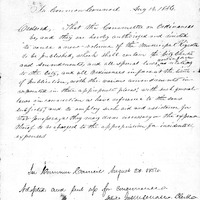 In Common Council, Aug 14, 1856.
Ordered, That the Committee on Ordinances
be, and they are hereby authorized and directed
to cause a new volume of the Municipal Register
to be published, which shall contain the City Charter
and amendments, and all special laws relating
to the City, and all Ordinances in force at the time of
publication with the various amendments in-
serted in their appropriate places, with such general
laws in connection as have reference to the same
subjects, and to employ such aid and assistance for
that purpose as they may deem necessary the ex-
pense thereof to be charged to the appropriation for incidental
expenses.
In Common Council August 2 1856.
Adopted and sent up for concurrence
Clerk